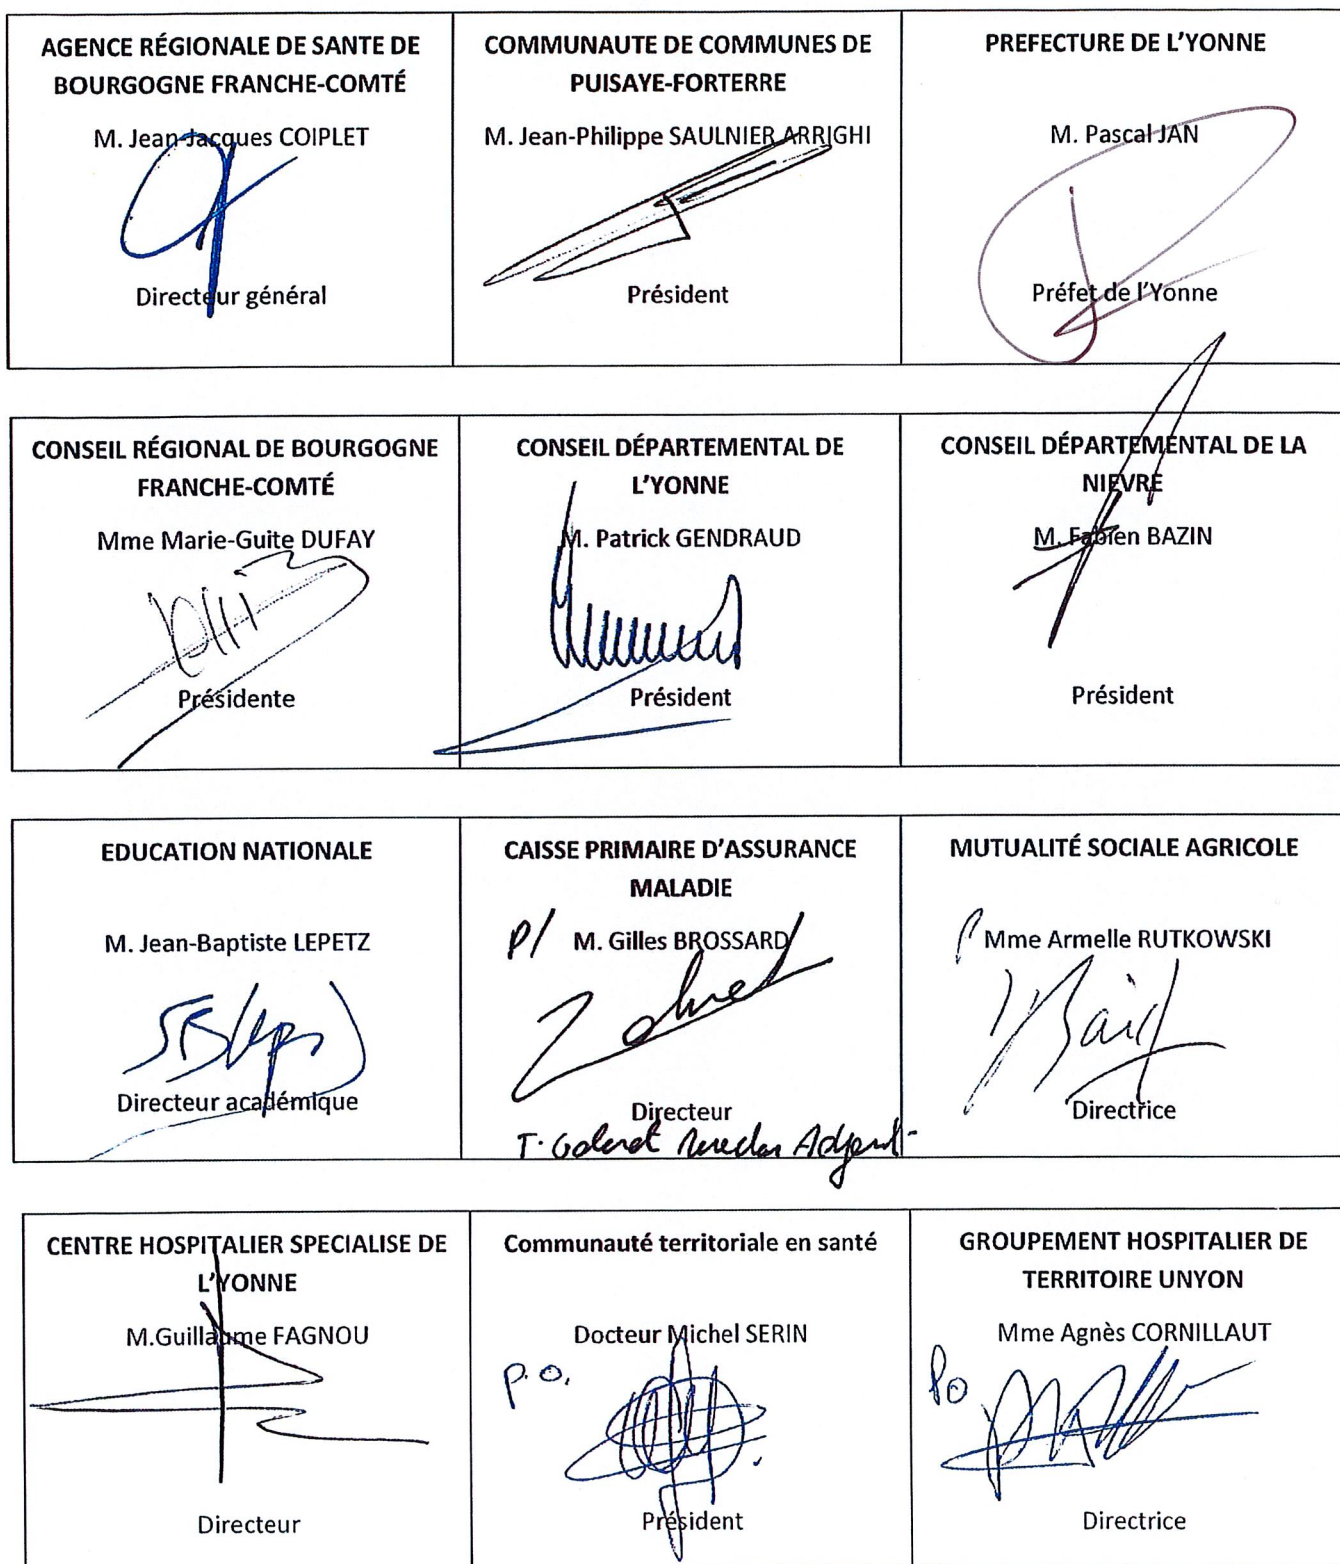 AGENCE RÉGIONALE DE SANTE DE
BOURGOGNE FRANCHE-COMTÉ
M. Jean-Jacques COIPLET
Directeur général
COMMUNAUTE DE COMMUNES DE
PUISAYE-FORTERRE
M. Jean-Philippe SAULNIER ARRIGHI
Président
PREFECTURE DE L'YONNE
M. Pascal JAN
Préfet de l'Yonne
CONSEIL RÉGIONAL DE BOURGOGNE
FRANCHE-COMTÉ
Mme Marie-Guite DUFAY
Présidente
CONSEIL DÉPARTEMENTAL DE
L'YONNE
M. Patrick GENDRAUD
Président
CONSEIL DÉPARTEMENTAL DE LA
NIEVRE
M. Fabien BAZIN
Président
EDUCATION NATIONALE
M. Jean-Baptiste LEPETZ
Directeur académique
CAISSE PRIMAIRE D'ASSURANCE
MALADIE
P/ M. Gilles BROSSARD
Directeur
T.
MUTUALITÉ SOCIALE AGRICOLE
Mme Armelle RUTKOWSKI
Directrice
CENTRE HOSPITALIER SPECIALISE DE
L'YONNE
M.Guillaume FAGNOU
Directeur
Communauté territoriale en santé
Docteur Michel SERIN
p.o.
Président
GROUPEMENT HOSPITALIER DE
TERRITOIRE UNYON
Mme Agnès CORNILLAUT
Po
Directrice